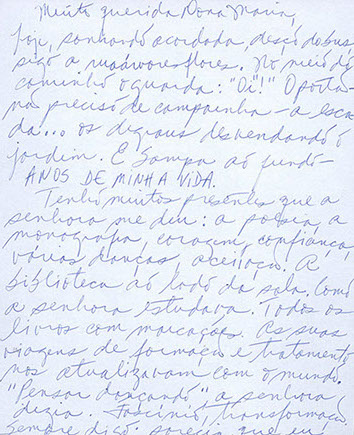 Muito querida Dona Maria,
foje, sonhando acordada, desço do bus
sigo a ruaárvoresflores. No meio do
caminho o guarda: "Oi!" O porta-
na preciso de campainha - a esca
da... os degraus desvendando o
jardim. E Sampa ao fundo -
ANOS DE MINHA VIDA.
Tenho muitos presentes que a
senhora me deu: a poesia, a
monografia, coragem, confiança,
várias danças, aceitação. A
biblioteca ao lado da sala. Como
a senhora estudava. Todos os
livros com marcações. As suas
viagens de formação e tratamento
nos atualizavam com o mundo.
"Pensar dançando" a senhora
dizia. Fascínio, transformação.
Sempre digo: parecia que eu